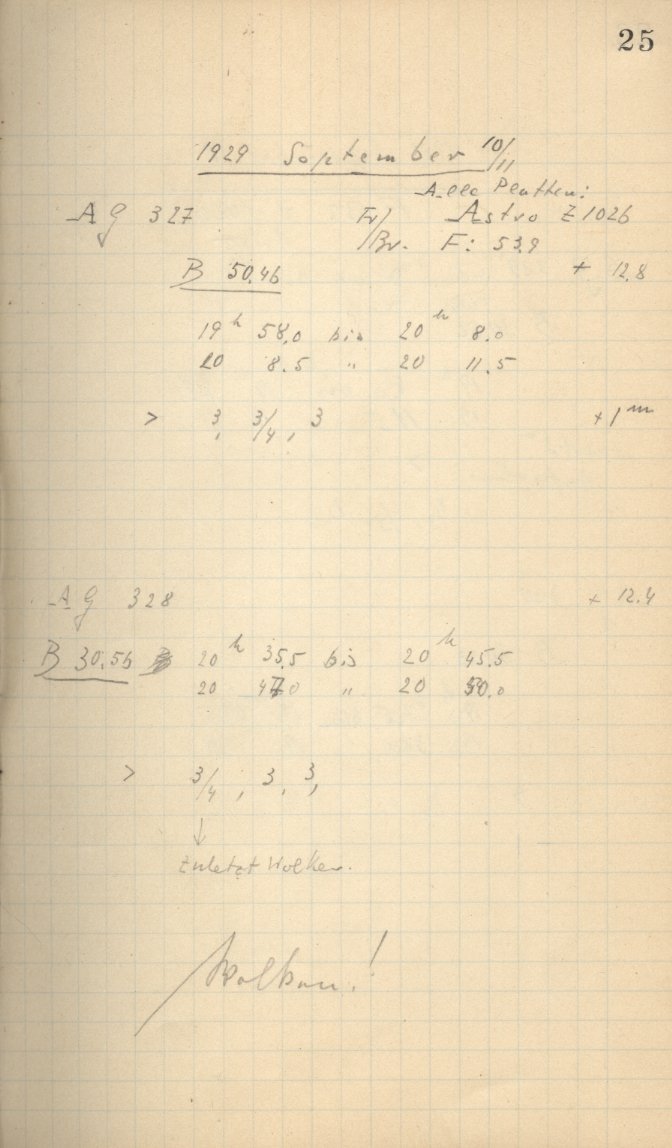 25
1929 September 10/11
Alle Platten:
AG 327 Fr/Br. Astro Z 1026
F: 539
B 50.46 + 12.8
19 h 58.0 bis 20 h 8.0
20 8.5 " 20 11.5
> 3, 3/4, 3 + 1 m
AG 328 + 12.4
B 30.56 20 h 35.5 bis 20 h 45.5
20 47.0 " 20 50.0
> 3/4, 3, 3,
↓
zuletzt Wolken.
Wolken!